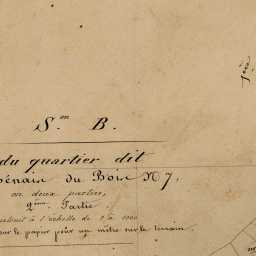 S.on B.
du quartier dit
du Bois N 7.
en deux parties,
2ème Partie.
à l'échelle de 1 à 1000
sur le papier pour un mètre sur le terrain.